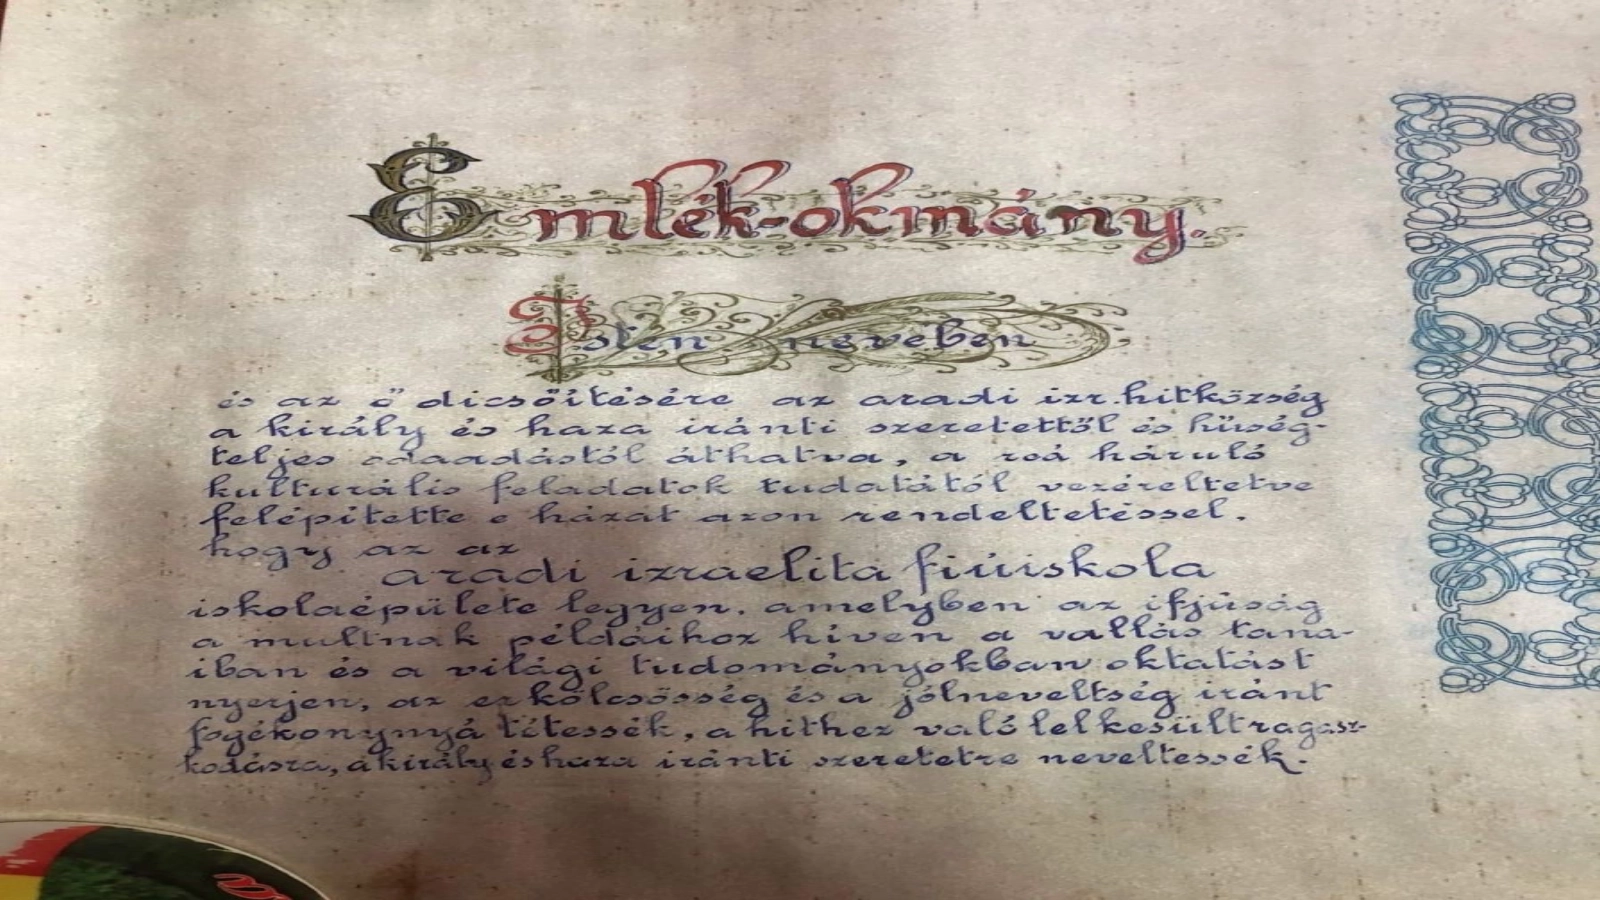 Emlék-okmány.
Isten nevében
és az ő dicsőítésére az aradi izr. hitközség
a király és haza iránti szeretettől és hűség-
teljes odaadástól áthatva, a reá háruló
kulturális feladatok tudatától vezéreltetve
felépítette e házát azon rendeltetéssel,
hogy az az
aradi izraelita fiúiskola
iskolaépülete legyen, amelyben az ifjúság
a multnak példáihoz híven a vallás tana-
iban és a világi tudományokban oktatást
nyerjen, az erkölcsösség és a jólneveltség iránt
fogékonynyá tétessék, a hithez való lelkesült ragasz-
kodásra, a király és haza iránti szeretetre neveltessék.